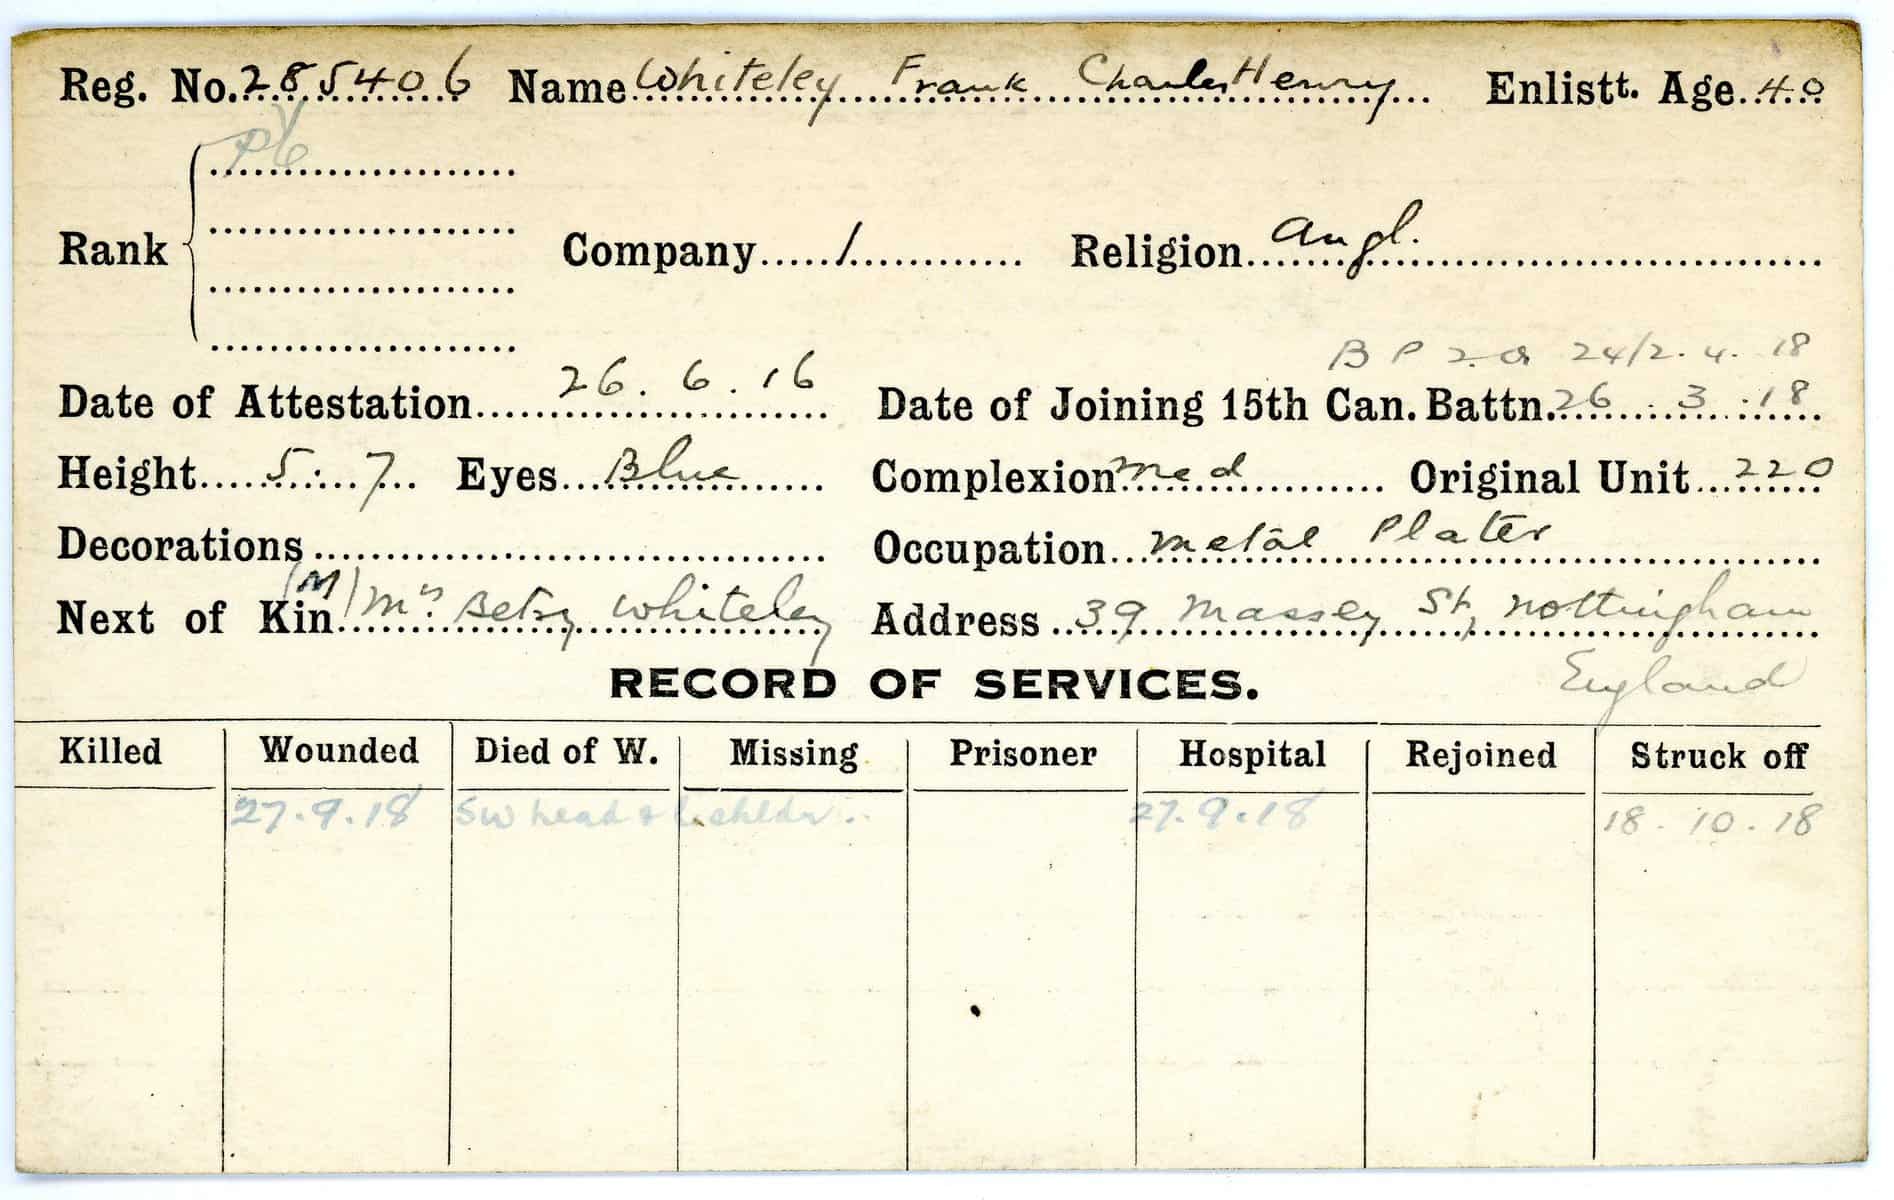 Reg. No. 285406 Name Whiteley Frank Charles Henry Enlistt. Age 40
Rank Company 1 Religion Angl.
B P 2 24/2.4.18
Date of Attestation 26.6.16 Date of Joining 15th Can. Battn. 26.3.18
Height 5.7 Eyes Blue Complexion Med Original Unit 220
Decorations Occupation Metal Plater
Next of Kin (M) Mrs. Betsy Whiteley Address 39 Massey St, Nottingham
England
RECORD OF SERVICES.
Killed Wounded Died of W. Missing Prisoner Hospital Rejoined Struck off
27.9.18 SW head & 27.9.18 18.10.18